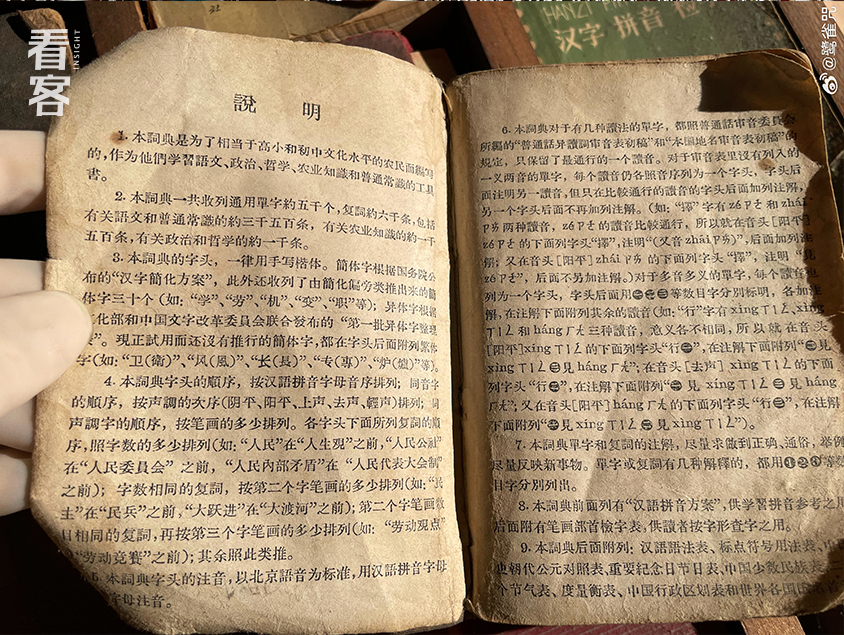 看客
INSIGHT
HANZI
汉字 拼音 检
@鹭雀咒
說 明
1. 本詞典是为了相当于高小和初中文化水平的农民而編写
的，作为他們学習語文、政治、哲学、农业知識和普通常識的工具
書。
2. 本詞典一共收列通用單字約五千个，复詞約六千条，包括
有关語文和普通常識的約三千五百条，有关农业知識的約一千
五百条，有关政治和哲学的約一千条。
3. 本詞典的字头，一律用手写楷体。簡体字根据国务院公
布的“汉字簡化方案”，此外还收列了由簡化偏旁类推出来的簡
体字三十个（如：“学”、“劳”、“机”、“变”、“职”等）；异体字根据
化部和中国文字改革委員会联合發布的“第一批异体字整理
”。現正試用而还没有推行的簡体字，都在字头后面附列繁体
字（如：“卫（衛）”、“风（風）”、“长（長）”、“专（專）”、“炉（爐）”等）。
4. 本詞典字头的順序，按汉語拼音字母音序排列；同音字
的順序，按声調的次序（阴平、阳平、上声、去声、輕声）排列；同
声調字的順序，按笔画的多少排列。各字头下面所列复詞的順
序，照字数的多少排列（如：“人民”在“人生观”之前，“人民公社”
在“人民委員会”之前，“人民内部矛盾”在“人民代表大会制”
之前）；字数相同的复詞，按第二个字笔画的多少排列（如：“民
主”在“民兵”之前，“大跃进”在“大渡河”之前）；第二个字笔画数
目相同的复詞，再按第三个字笔画的多少排列（如：“劳动观点”
“劳动竞賽”之前）；其余照此类推。
5. 本詞典字头的注音，以北京語音为标准，用汉語拼音字母
字母注音。
6. 本詞典对于有几种讀法的單字，都照普通話审音委員会
所編的“普通話异讀詞审音表初稿”和“本国地名审音表初稿”的
規定，只保留了最通行的一个讀音。对于审音表里沒有列入的
一义两音的單字，每个讀音仍各照音序列为一个字头，字头后
面注明另一讀音，但只在比較通行的讀音的字头后面加列注解，
另一个字头后面不再加列注解。（如：“擇”字有 zé ㄗㄜˊ 和 zhái
ㄓㄞˊ 两种讀音，zé ㄗㄜˊ 的讀音比較通行，所以就在音头［阳平］
zé ㄗㄜˊ 的下面列字头“擇”，注明“（又音 zhái ㄓㄞˊ）”，后面加列注
解；又在音头［阳平］zhái ㄓㄞˊ 的下面列字头“擇”，注明“見
zé ㄗㄜˊ”，后面不另加注解。）对于多音多义的單字，每个讀音也
列为一个字头，字头后面用㊀㊁㊂等数目字分別标明，各加注
解，在注解下面附列其余的讀音（如：“行”字有 xíng ㄒㄧㄥˊ、xìng
ㄒㄧㄥˋ 和 háng ㄏㄤˊ 三种讀音，意义各不相同，所以就在音头
［阳平］xíng ㄒㄧㄥˊ 的下面列字头“行㊀”，在注解下面附列“㊁見
xìng ㄒㄧㄥˋ ㊂見 háng ㄏㄤˊ”；在音头［去声］xìng ㄒㄧㄥˋ 的下面
列字头“行㊁”，在注解下面附列“㊀見 xíng ㄒㄧㄥˊ ㊂見 háng
ㄏㄤˊ”；又在音头［阳平］háng ㄏㄤˊ 的下面列字头“行㊂”，在注解
下面附列“㊀見 xíng ㄒㄧㄥˊ ㊁見 xìng ㄒㄧㄥˋ”）。
7. 本詞典單字和复詞的注解，尽量求做到正确、通俗，举例
尽量反映新事物。單字或复詞有几种解釋的，都用❶❷❸等数
目字分別列出。
8. 本詞典前面列有“汉語拼音方案”，供学習拼音参考之用
后面附有笔画部首檢字表，供讀者按字形查字之用。
9. 本詞典后面附列：汉語語法表、标点符号用法表、中
史朝代公元对照表、重要紀念日节日表、中国少数民族表、二
个节气表、度量衡表、中国行政区划表和世界各国